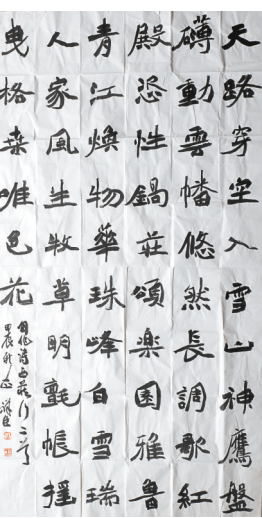 天路穿空入雪山神鷹盤
礴動雲幡悠然長調歌紅
殿恣性鍋莊頌樂園雅魯
青江煥物華珠峰白雪瑞
人家風生牧草明氈帳摇
曳格桑唯色花
甲辰秋